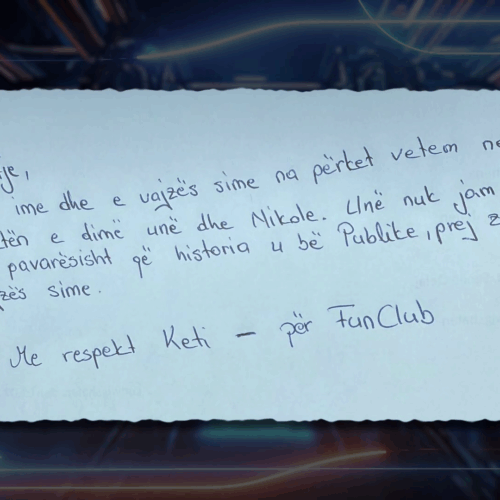 je,
ime dhe e vajzës sime na përket vetem ne
tën e dimë unë dhe Nikole. Unë nuk jam
pavarësisht që historia u bë Publike, prej z
zës sime.
Me respekt Keti – për FunClub